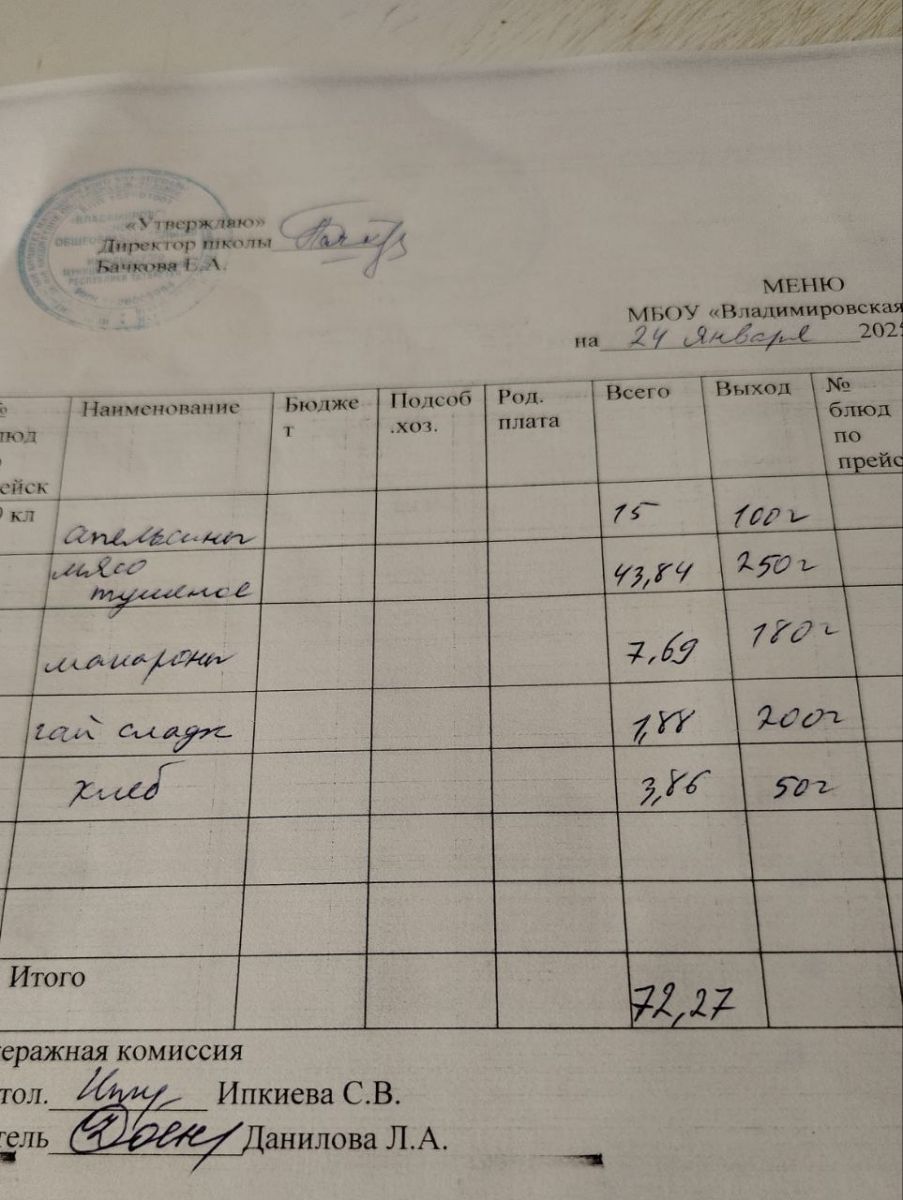 «Утверждаю»
Директор школы
Бачкова Е.А.
МЕНЮ
МБОУ «Владимировская
на 24 января 202
№ Наименование Бюдже Подсоб Род. Всего Выход №
люд т .хоз. плата блюд
по
ейск прейс
кл
апельсины 15 100г
мясо 43,84 250г
тушеное
макароны 7,69 180г
чай сладк 1,88 200г
хлеб 3,86 50г
Итого 72,27
еражная комиссия
тол. Ипкиева С.В.
тель Данилова Л.А.